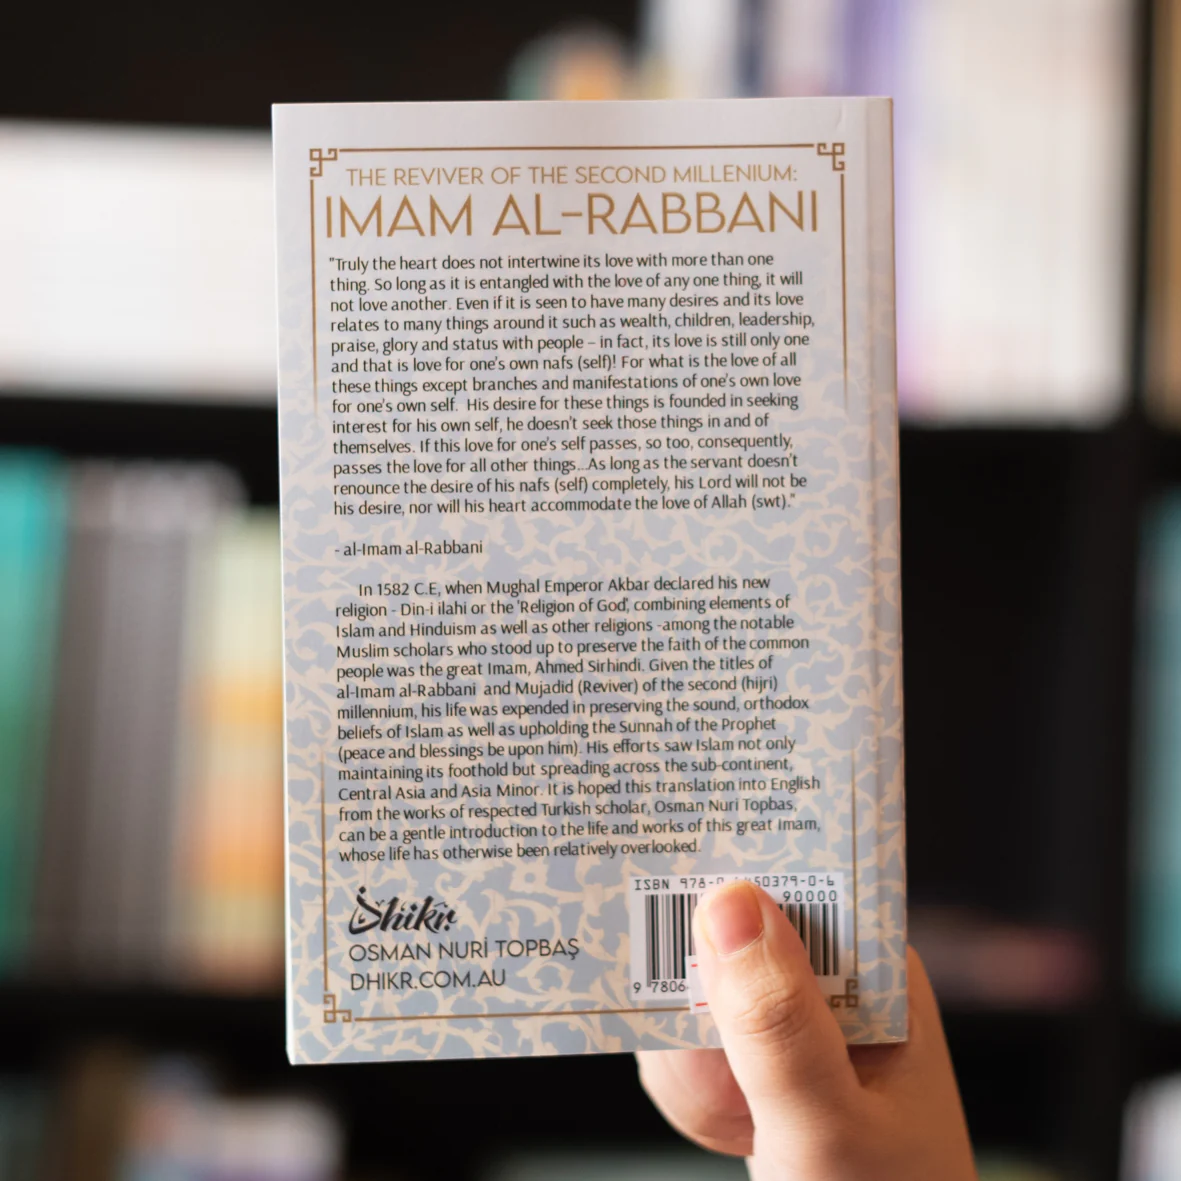 THE REVIVER OF THE SECOND MILLENIUM:
IMAM AL-RABBANI
"Truly the heart does not intertwine its love with more than one
thing. So long as it is entangled with the love of any one thing, it will
not love another. Even if it is seen to have many desires and its love
relates to many things around it such as wealth, children, leadership,
praise, glory and status with people – in fact, its love is still only one
and that is love for one's own nafs (self)! For what is the love of all
these things except branches and manifestations of one's own love
for one's own self. His desire for these things is founded in seeking
interest for his own self, he doesn't seek those things in and of
themselves. If this love for one's self passes, so too, consequently,
passes the love for all other things...As long as the servant doesn't
renounce the desire of his nafs (self) completely, his Lord will not be
his desire, nor will his heart accommodate the love of Allah (swt)."
- al-Imam al-Rabbani
In 1582 C.E, when Mughal Emperor Akbar declared his new
religion - Din-i ilahi or the 'Religion of God', combining elements of
Islam and Hinduism as well as other religions -among the notable
Muslim scholars who stood up to preserve the faith of the common
people was the great Imam, Ahmed Sirhindi. Given the titles of
al-Imam al-Rabbani and Mujadid (Reviver) of the second (hijri)
millennium, his life was expended in preserving the sound, orthodox
beliefs of Islam as well as upholding the Sunnah of the Prophet
(peace and blessings be upon him). His efforts saw Islam not only
maintaining its foothold but spreading across the sub-continent,
Central Asia and Asia Minor. It is hoped this translation into English
from the works of respected Turkish scholar, Osman Nuri Topbas,
can be a gentle introduction to the life and works of this great Imam,
whose life has otherwise been relatively overlooked.
Dhikr
OSMAN NURİ TOPBAŞ
DHIKR.COM.AU
ISBN 978-0 50379-0-6
90000
9 7806